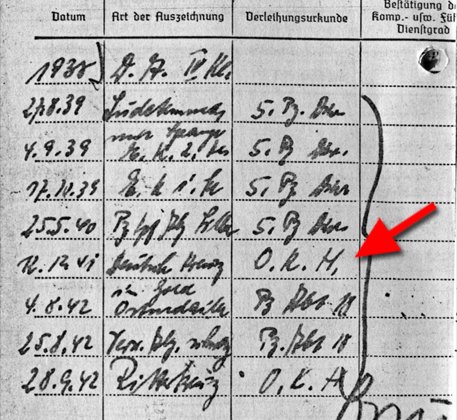 Bestätigung d
Datum Art der Auszeichnung Verleihungsurkunde Komp.- usw. Fü
Dienstgrad
1938 D. A. IV Kl.
27.8.39 5. Pz. Div
mit Spange
4.9.39 E. K. 2. Kl 5. Pz Div.
17.10.39 E. K. 1. Kl 5. Pz Div
25.5.40 5. Pz Div
12.12.41 Deutsch Kreuz O. K. H.
in Gold
4.8.42 Ostmedaille Pz Abt. 18
25.8.42 Verw. Abz. schwarz Pz. Abt 18
28.9.42 Ritterkreuz O. K. H